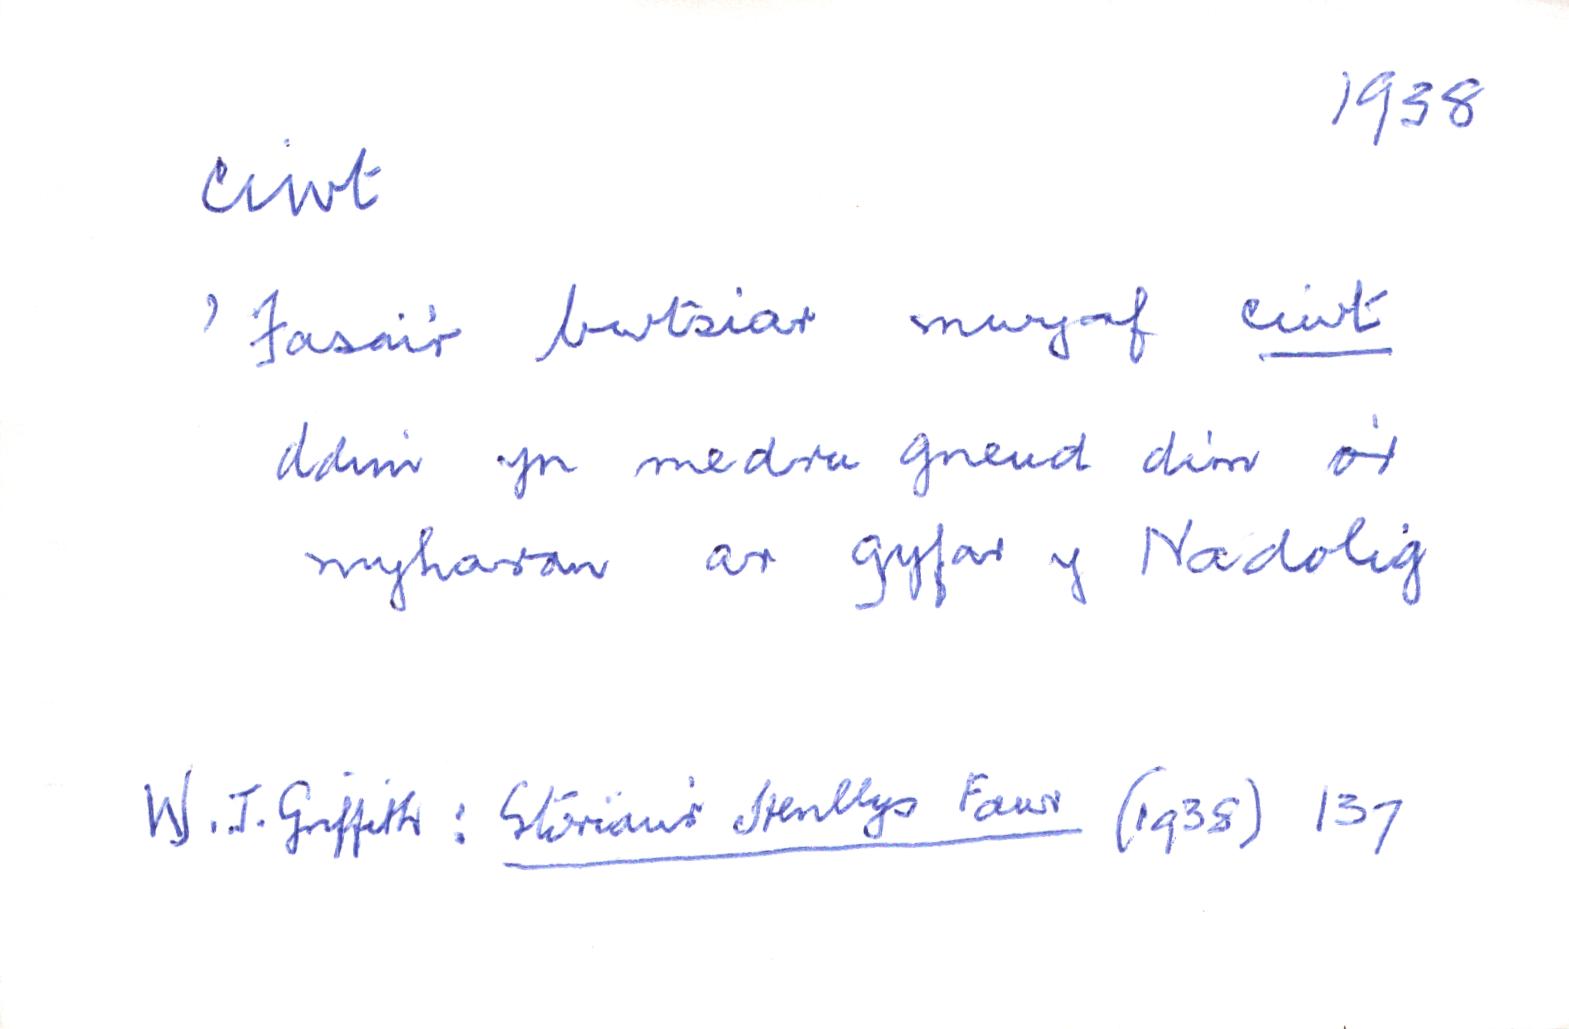 1938
ciwt
'Fasai'r bwtsiar mwyaf ciwt
ddim yn medru gneud dim o'r
myharan ar gyfar y Nadolig
W. J. Griffith : Storïau'r Henllys Fawr (1938) 137